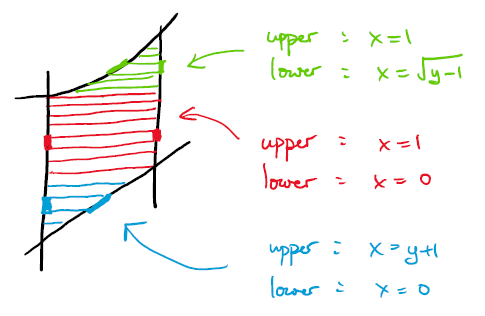 upper : x=1
lower : x=√y-1
upper : x=1
lower : x=0
upper : x=y+1
lower : x=0